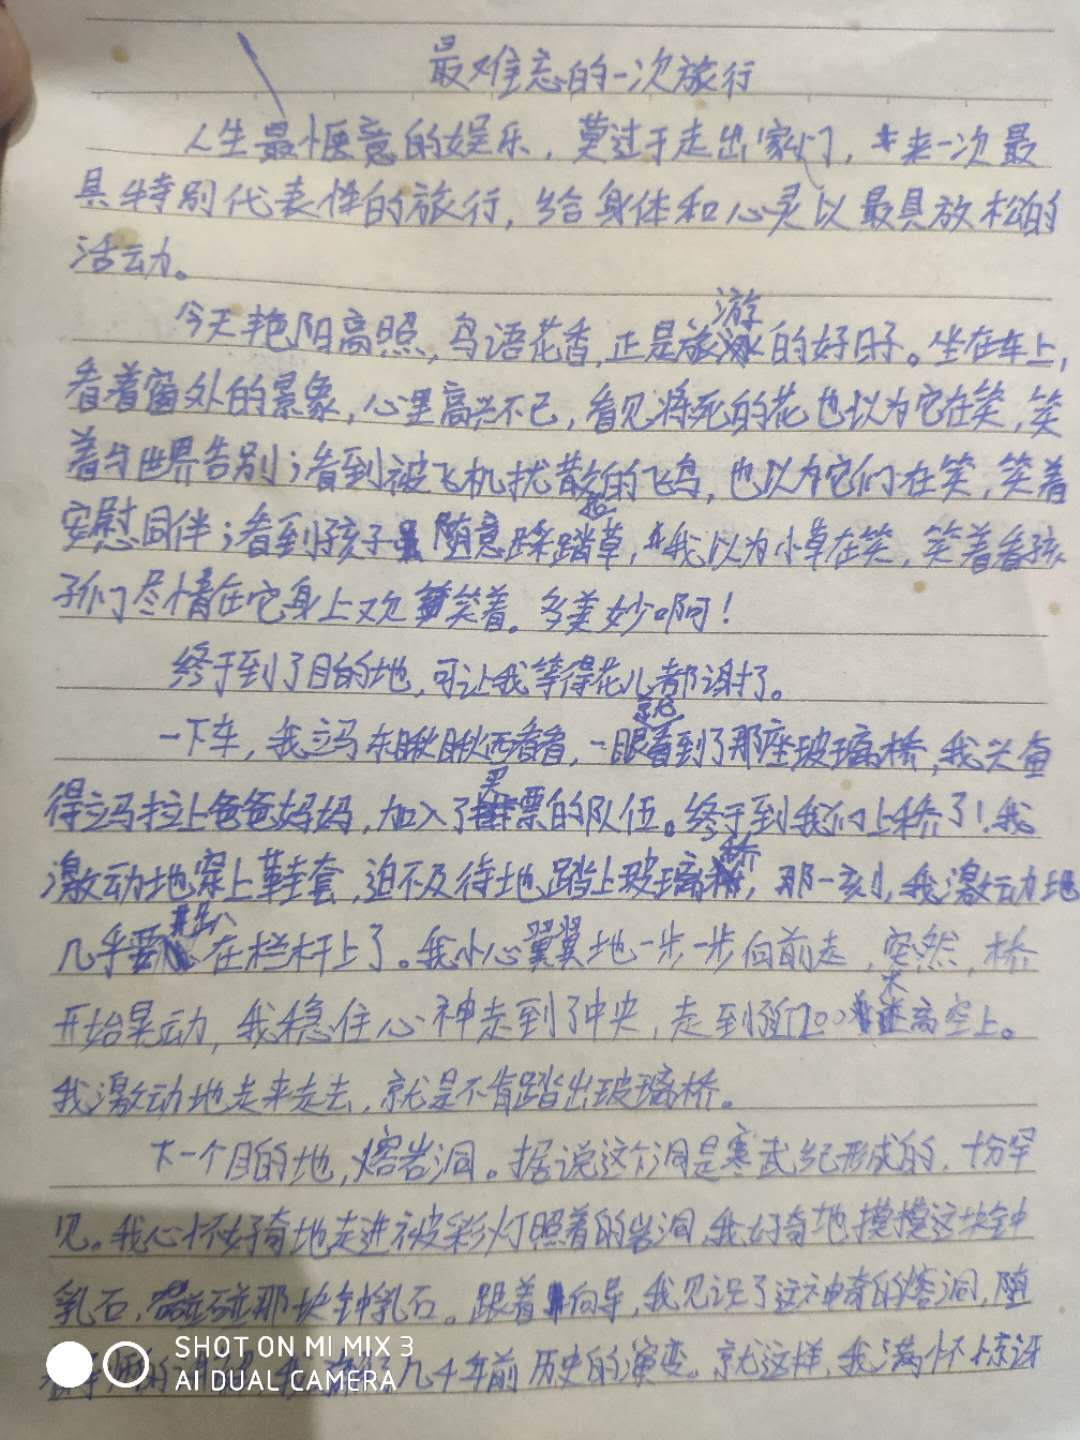 最难忘的一次旅行
人生最惬意的娱乐，莫过于走出家门，来一次最
具特别代表性的旅行，给身体和心灵以最具放松的
活动。
今天艳阳高照，鸟语花香，正是旅游的好日子。坐在车上，
看着窗外的景象，心里高兴不已，看见将死的花也以为它在笑，笑
着与世界告别；看到被飞机扰散的飞鸟，也以为它们在笑，笑着
安慰同伴；看到孩子随意踩踏草，我以为小草在笑，笑着看孩
子们尽情在它身上欢笑着。多美妙啊！
终于到了目的地，可让我等得花儿都谢了。
一下车，我立马东瞅瞅西看看，一眼就看到了那座玻璃桥，我兴奋
得立马拉上爸爸妈妈，加入了买票的队伍。终于到我们上桥了！我
激动地穿上鞋套，迫不及待地踏上玻璃桥，那一刻，我激动地
几乎要趴在栏杆上了。我小心翼翼地一步一步向前走，突然，桥
开始晃动，我稳住心神走到了中央，走到近200米高空上。
我激动地走来走去，就是不肯踏出玻璃桥。
下一个目的地，熔岩洞。据说这个洞是寒武纪形成的，十分罕
见。我心怀好奇地走进被彩灯照着的岩洞，我好奇地摸摸这块钟
乳石，碰碰那块钟乳石。跟着向导，我见识了这神奇的熔洞，随
几千年前历史的演变。就这样，我满怀惊讶
SHOT ON MI MIX 3
AI DUAL CAMERA